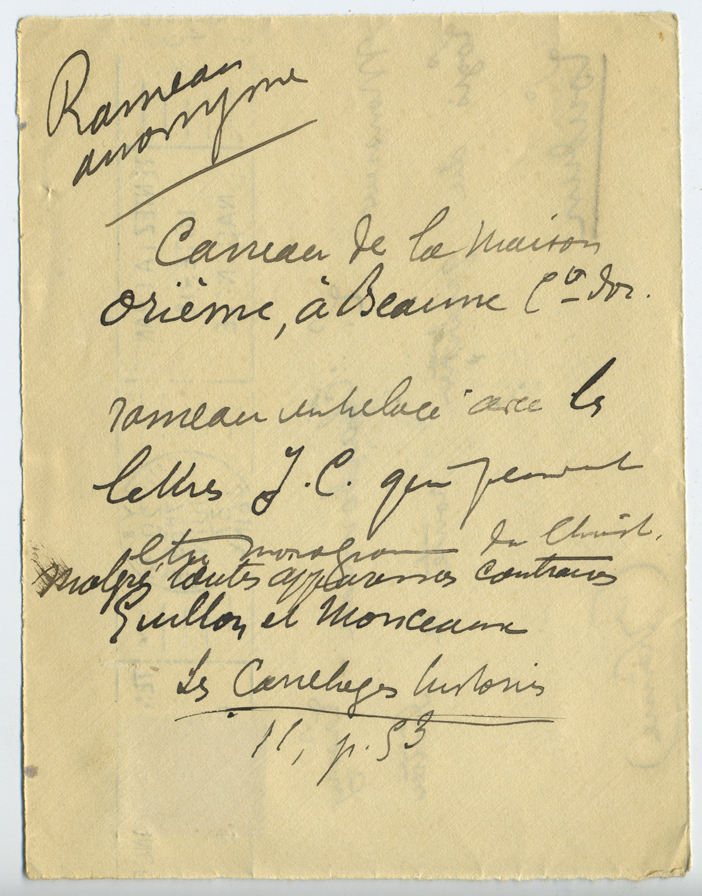 Rameau
anonyme
Carreau de la Maison
Orième, à Beaune Cte d'or.
rameau entrelacé avec les
lettres J. C. qui peuvent
etre monogramme du Christ.
Malgré toutes apparences contraires
Guillon et Monceaux
Les Carrelages historiés
11, p. 53